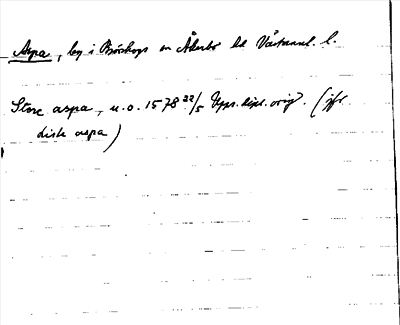 Aspa, beg i Björskogs sn Åkerbo hd Västmanl. l.
Store aspa, u.o. 1578 22/5 Upps. dipl. orig. (jfr
Lisle aspa)